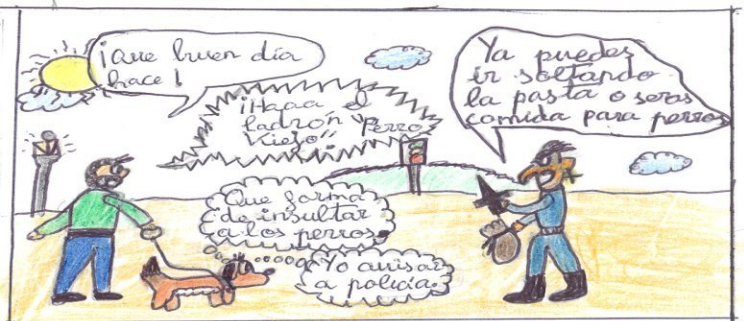 ¡Que buen día
hace!
¡Haaa el
ladrón "Perro
Viejo".
Ya puedes
ir soltando
la pasta o seras
comida para perros
Que forma
de insultar
a los perros.
Yo avisar
a policia.